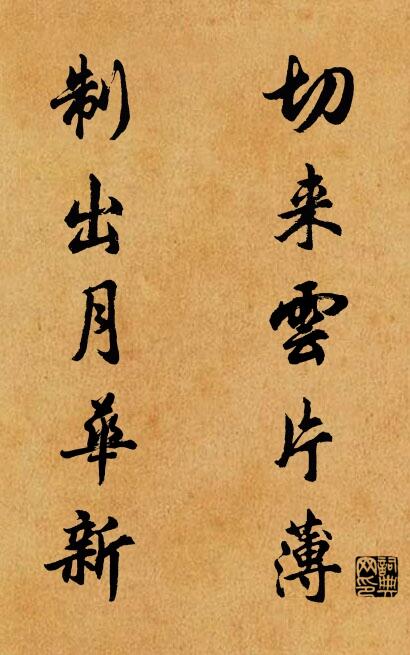 切来雲片薄
制出月華新
詞典网印